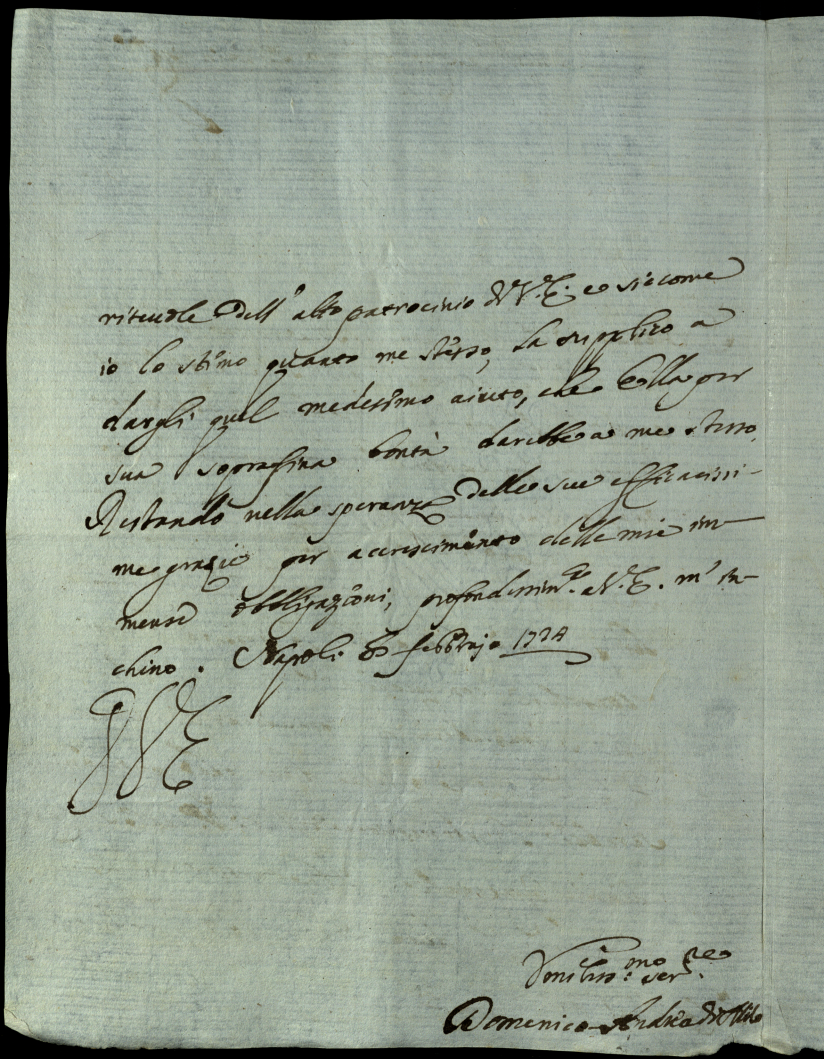 ritevole dell'alto patrocinio di V.E. e siccome
io lo stimo quanto me stesso, la supplico a
dargli quel medesimo aiuto, che Ella per
sua soprafina bontà darebbe a me stesso.
Restando nella speranza delle sue efficacissi-
me grazie per accrescimento delle mie im-
mense obbligazioni, profondissim.te a V.E. m'in-
chino. Napoli 8 febbrajo 1724
D V E
Umiliss.mo ser.re
Domenico Andrea di Milo